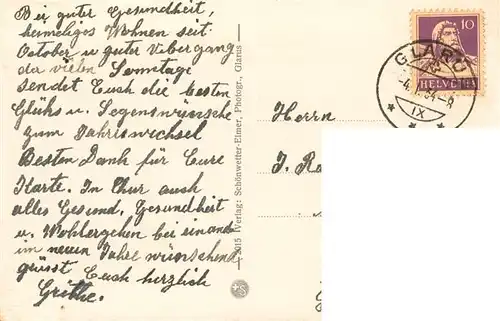 Bei guter Gesundheit,
heimeliges Wohnen seit
October u guter Uebergang
der vielen Sonntage
sendet Euch die besten
Glücks u. Segenswünsche
zum Jahreswechsel
Besten Dank für Eure
Karte. In Chur auch
alles Gesund. Gesundheit
u. Wohlergehen bei einand
im neuen Jahre wünschend
grüsst Euch herzlich
Grithe.
2015 Verlag: Schönwetter-Elmer, Photogr., Glarus
Herrn
J.
10
HELVETIA
GLARU
IX